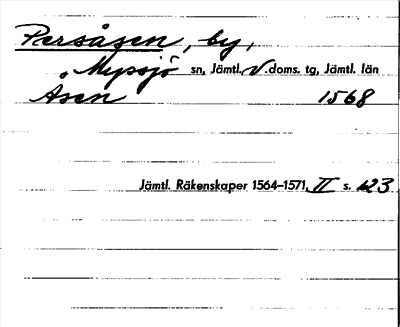 Persåsen, by,
Myssjö sn, Jämtl. V. doms. tg, Jämtl. län
Åsen 1568
Jämtl. Räkenskaper 1564–1571, II s. 123